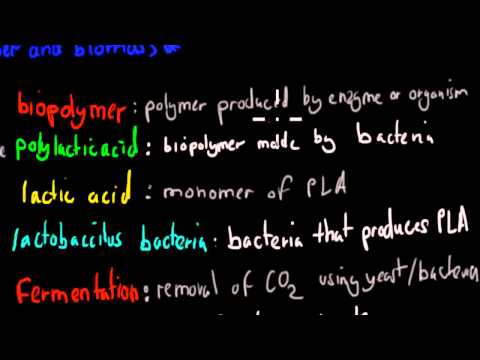 and biomass
biopolymer: polymer produced by enzyme or organism
polylactic acid: biopolymer made by bacteria
lactic acid: monomer of PLA
lactobaccilus bacteria: bacteria that produces PLA
Fermentation: removal of CO2 using yeast/bacteria